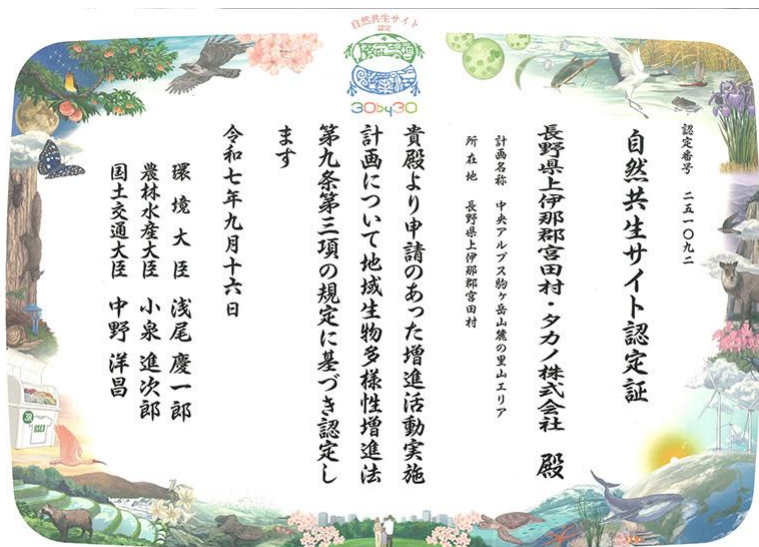 自然共生サイト
認定
30by30
認定番号 二五一〇九二
自然共生サイト認定証
長野県上伊那郡宮田村・タカノ株式会社 殿
計画名称 中央アルプス駒ヶ岳山麓の里山エリア
所在地 長野県上伊那郡宮田村
貴殿より申請のあった増進活動実施
計画について地域生物多様性増進法
第九条第三項の規定に基づき認定し
ます
令和七年九月十六日
環境大臣 浅尾慶一郎
農林水産大臣 小泉進次郎
国土交通大臣 中野洋昌